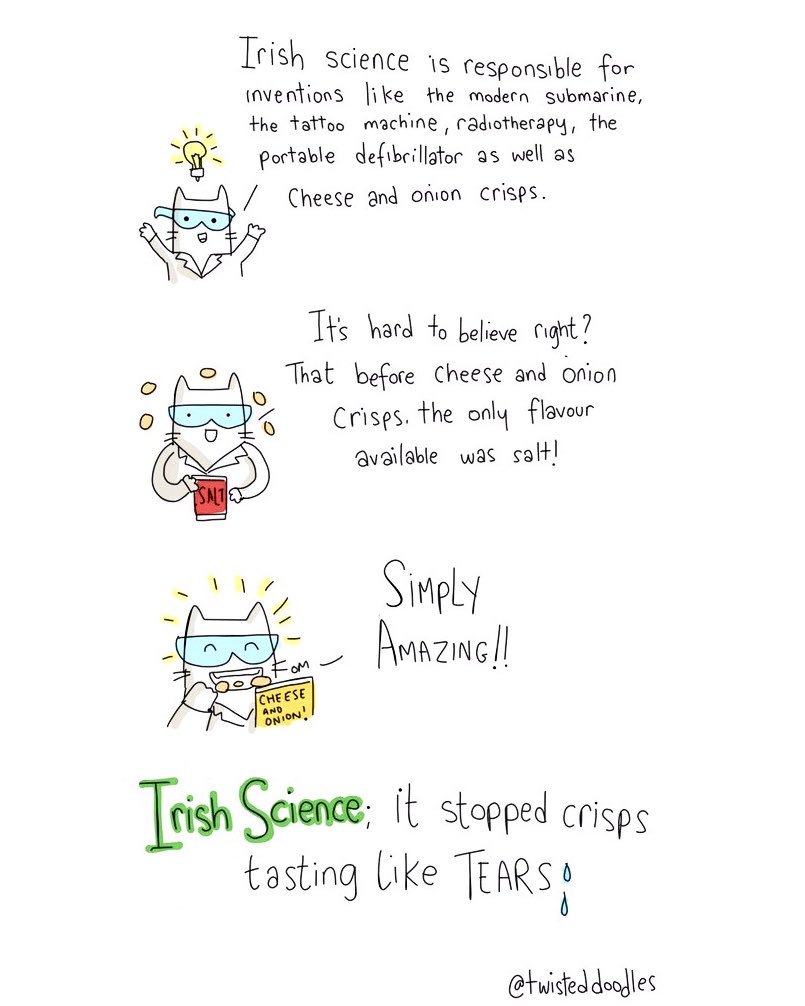 Irish science is responsible for
inventions like the modern submarine,
the tattoo machine, radiotherapy, the
portable defibrillator as well as
Cheese and onion crisps.
It's hard to believe right?
That before cheese and onion
Crisps. the only flavour
available was salt!
SALT
SIMPLY
AMAZING!!
OM
CHEESE
AND
ONION!
Irish Science; it stopped crisps
tasting like TEARS
@twisteddoodles